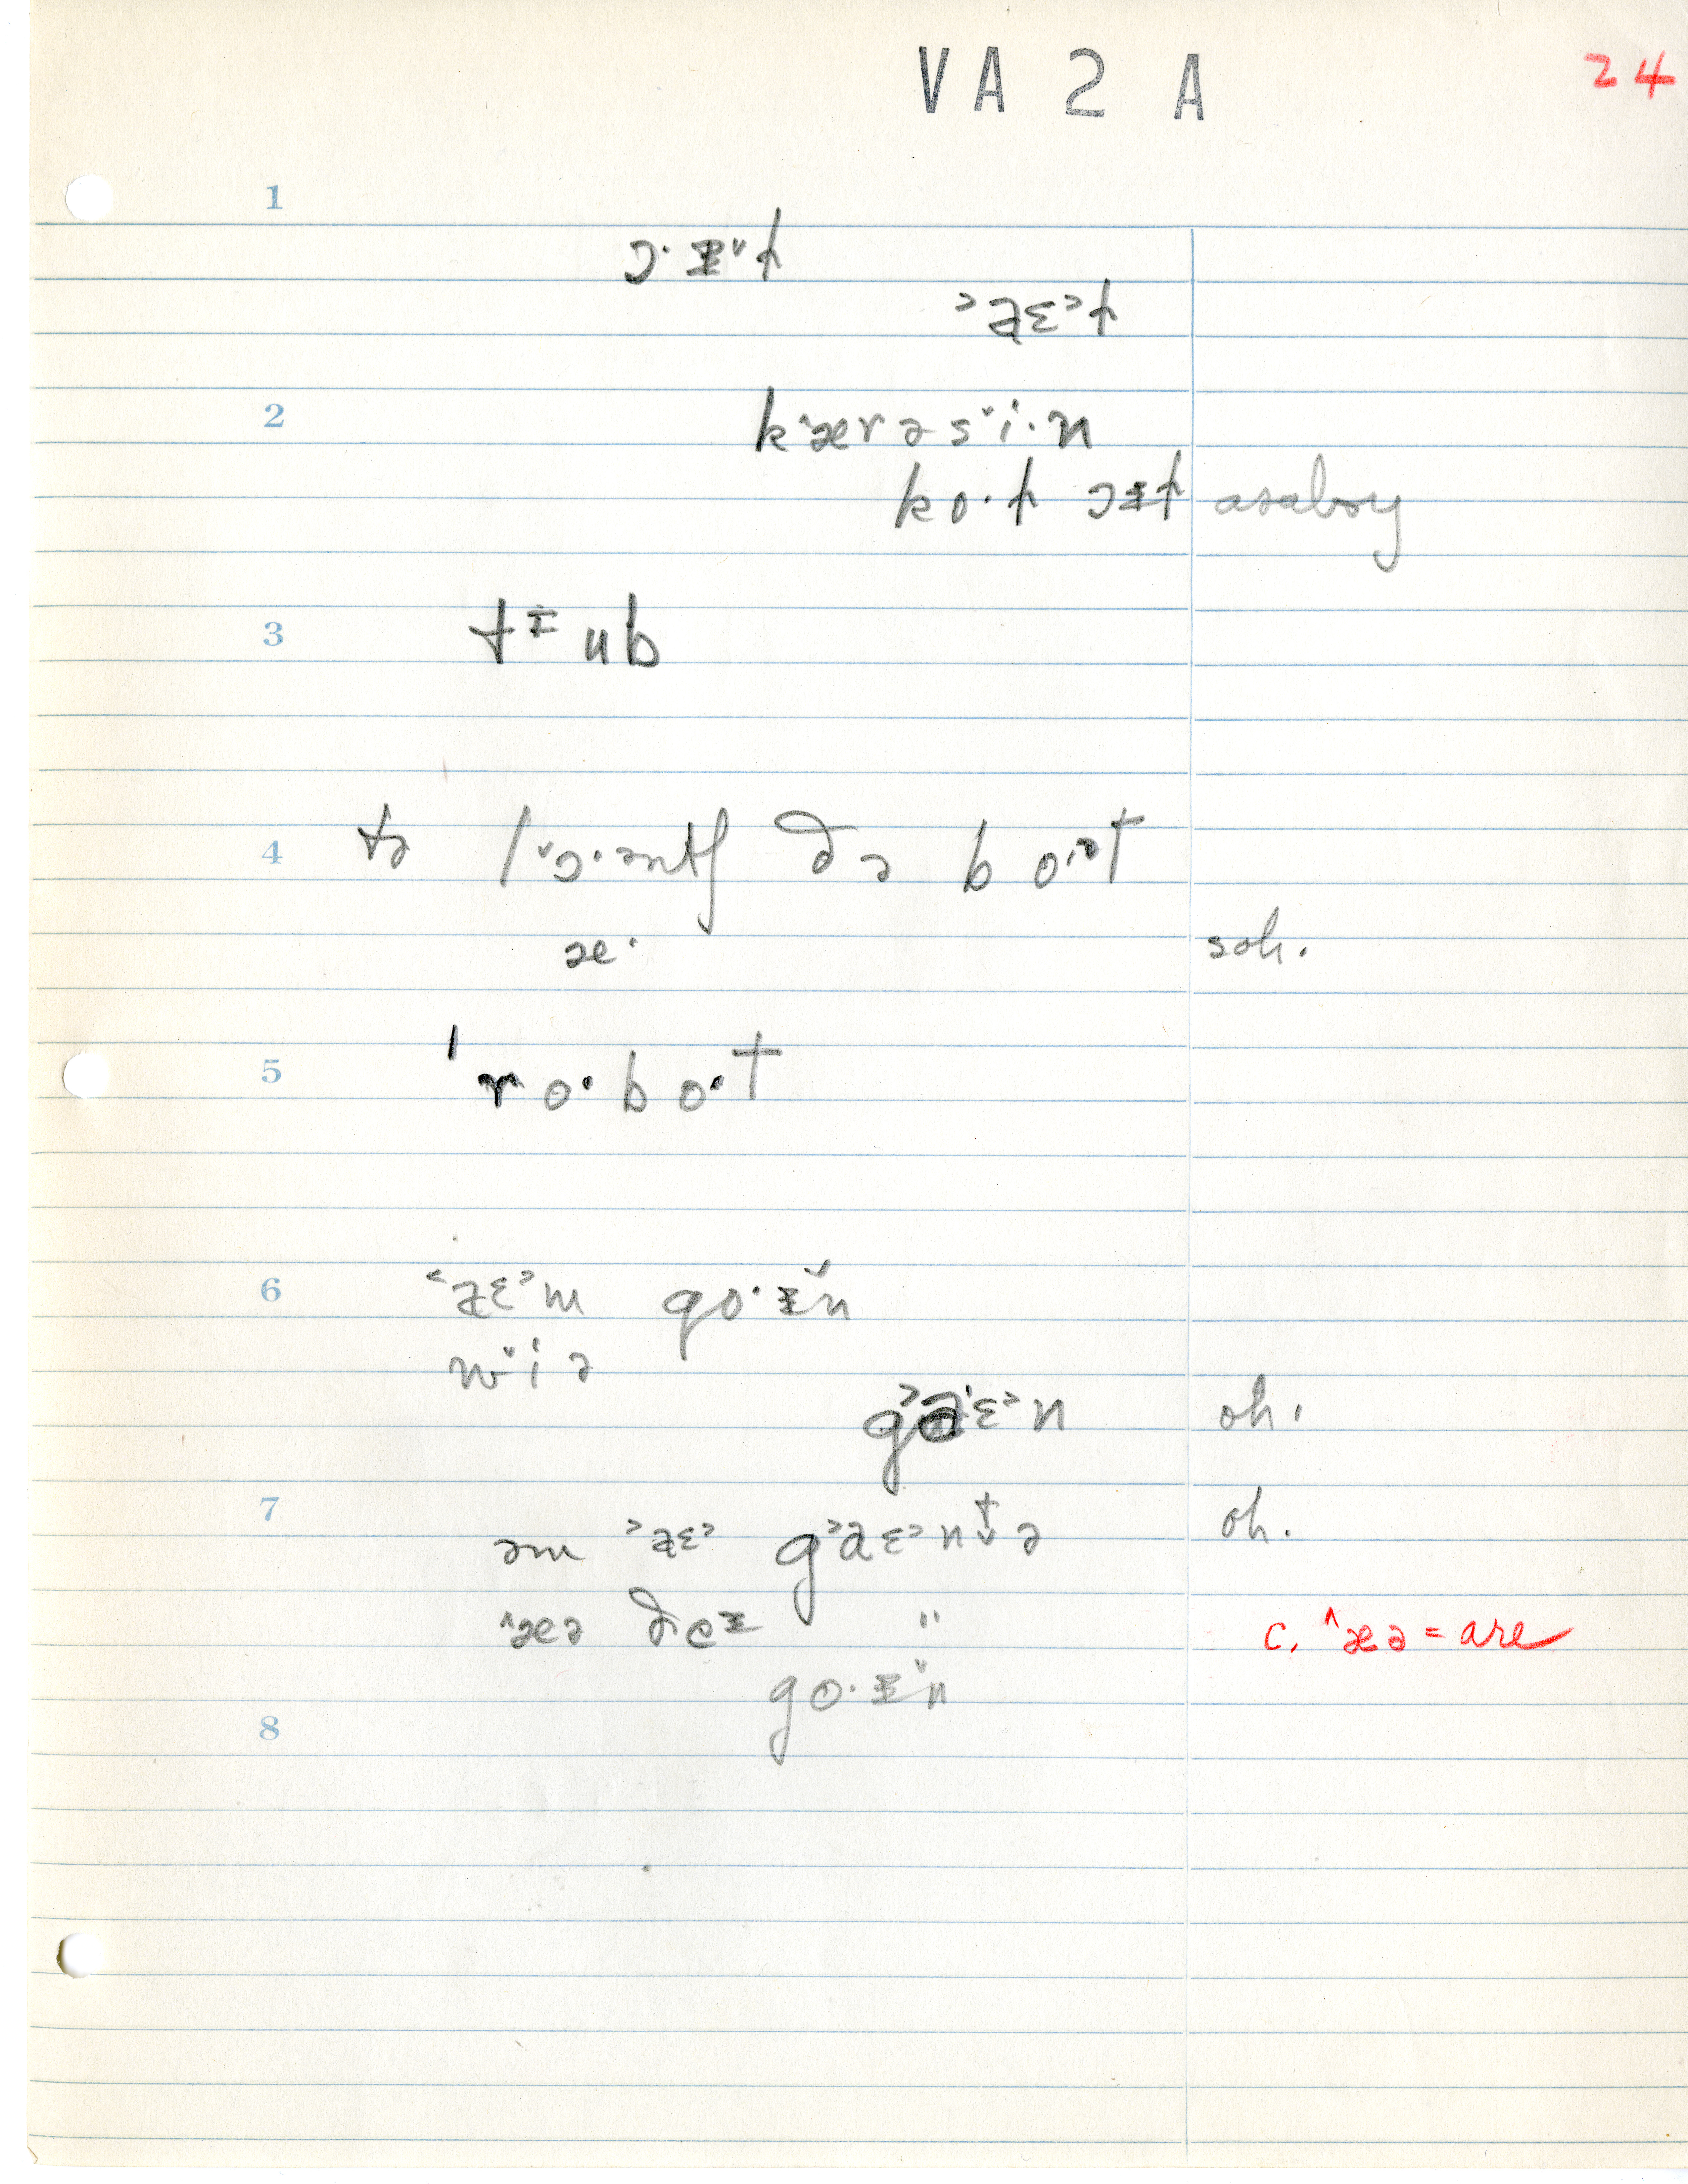 VA 2 A
24
1
ɔ·ɪ̵˅ɫ
˃a̵ɛ˃ɫ
2
k˄ærəs˅i·n
ko·ɫ ɔɪ̵ɫ asaboy
3
tɪ̵ub
4
tə l˅ɔ·əntʃ ðə bo·ət
æ· soh.
5
ˈro·bo·t
6
˂a̵ɛ˃m go·ɪ̵̆n
w˅iə
g˃aˑɛ˃n oh.
7
əm ˃a̵ɛ˃ g˃aɛ˃ntə oh.
˄æə ðeɪ̵ " c. ˄æə = are
go·ɪ̵˅n
8